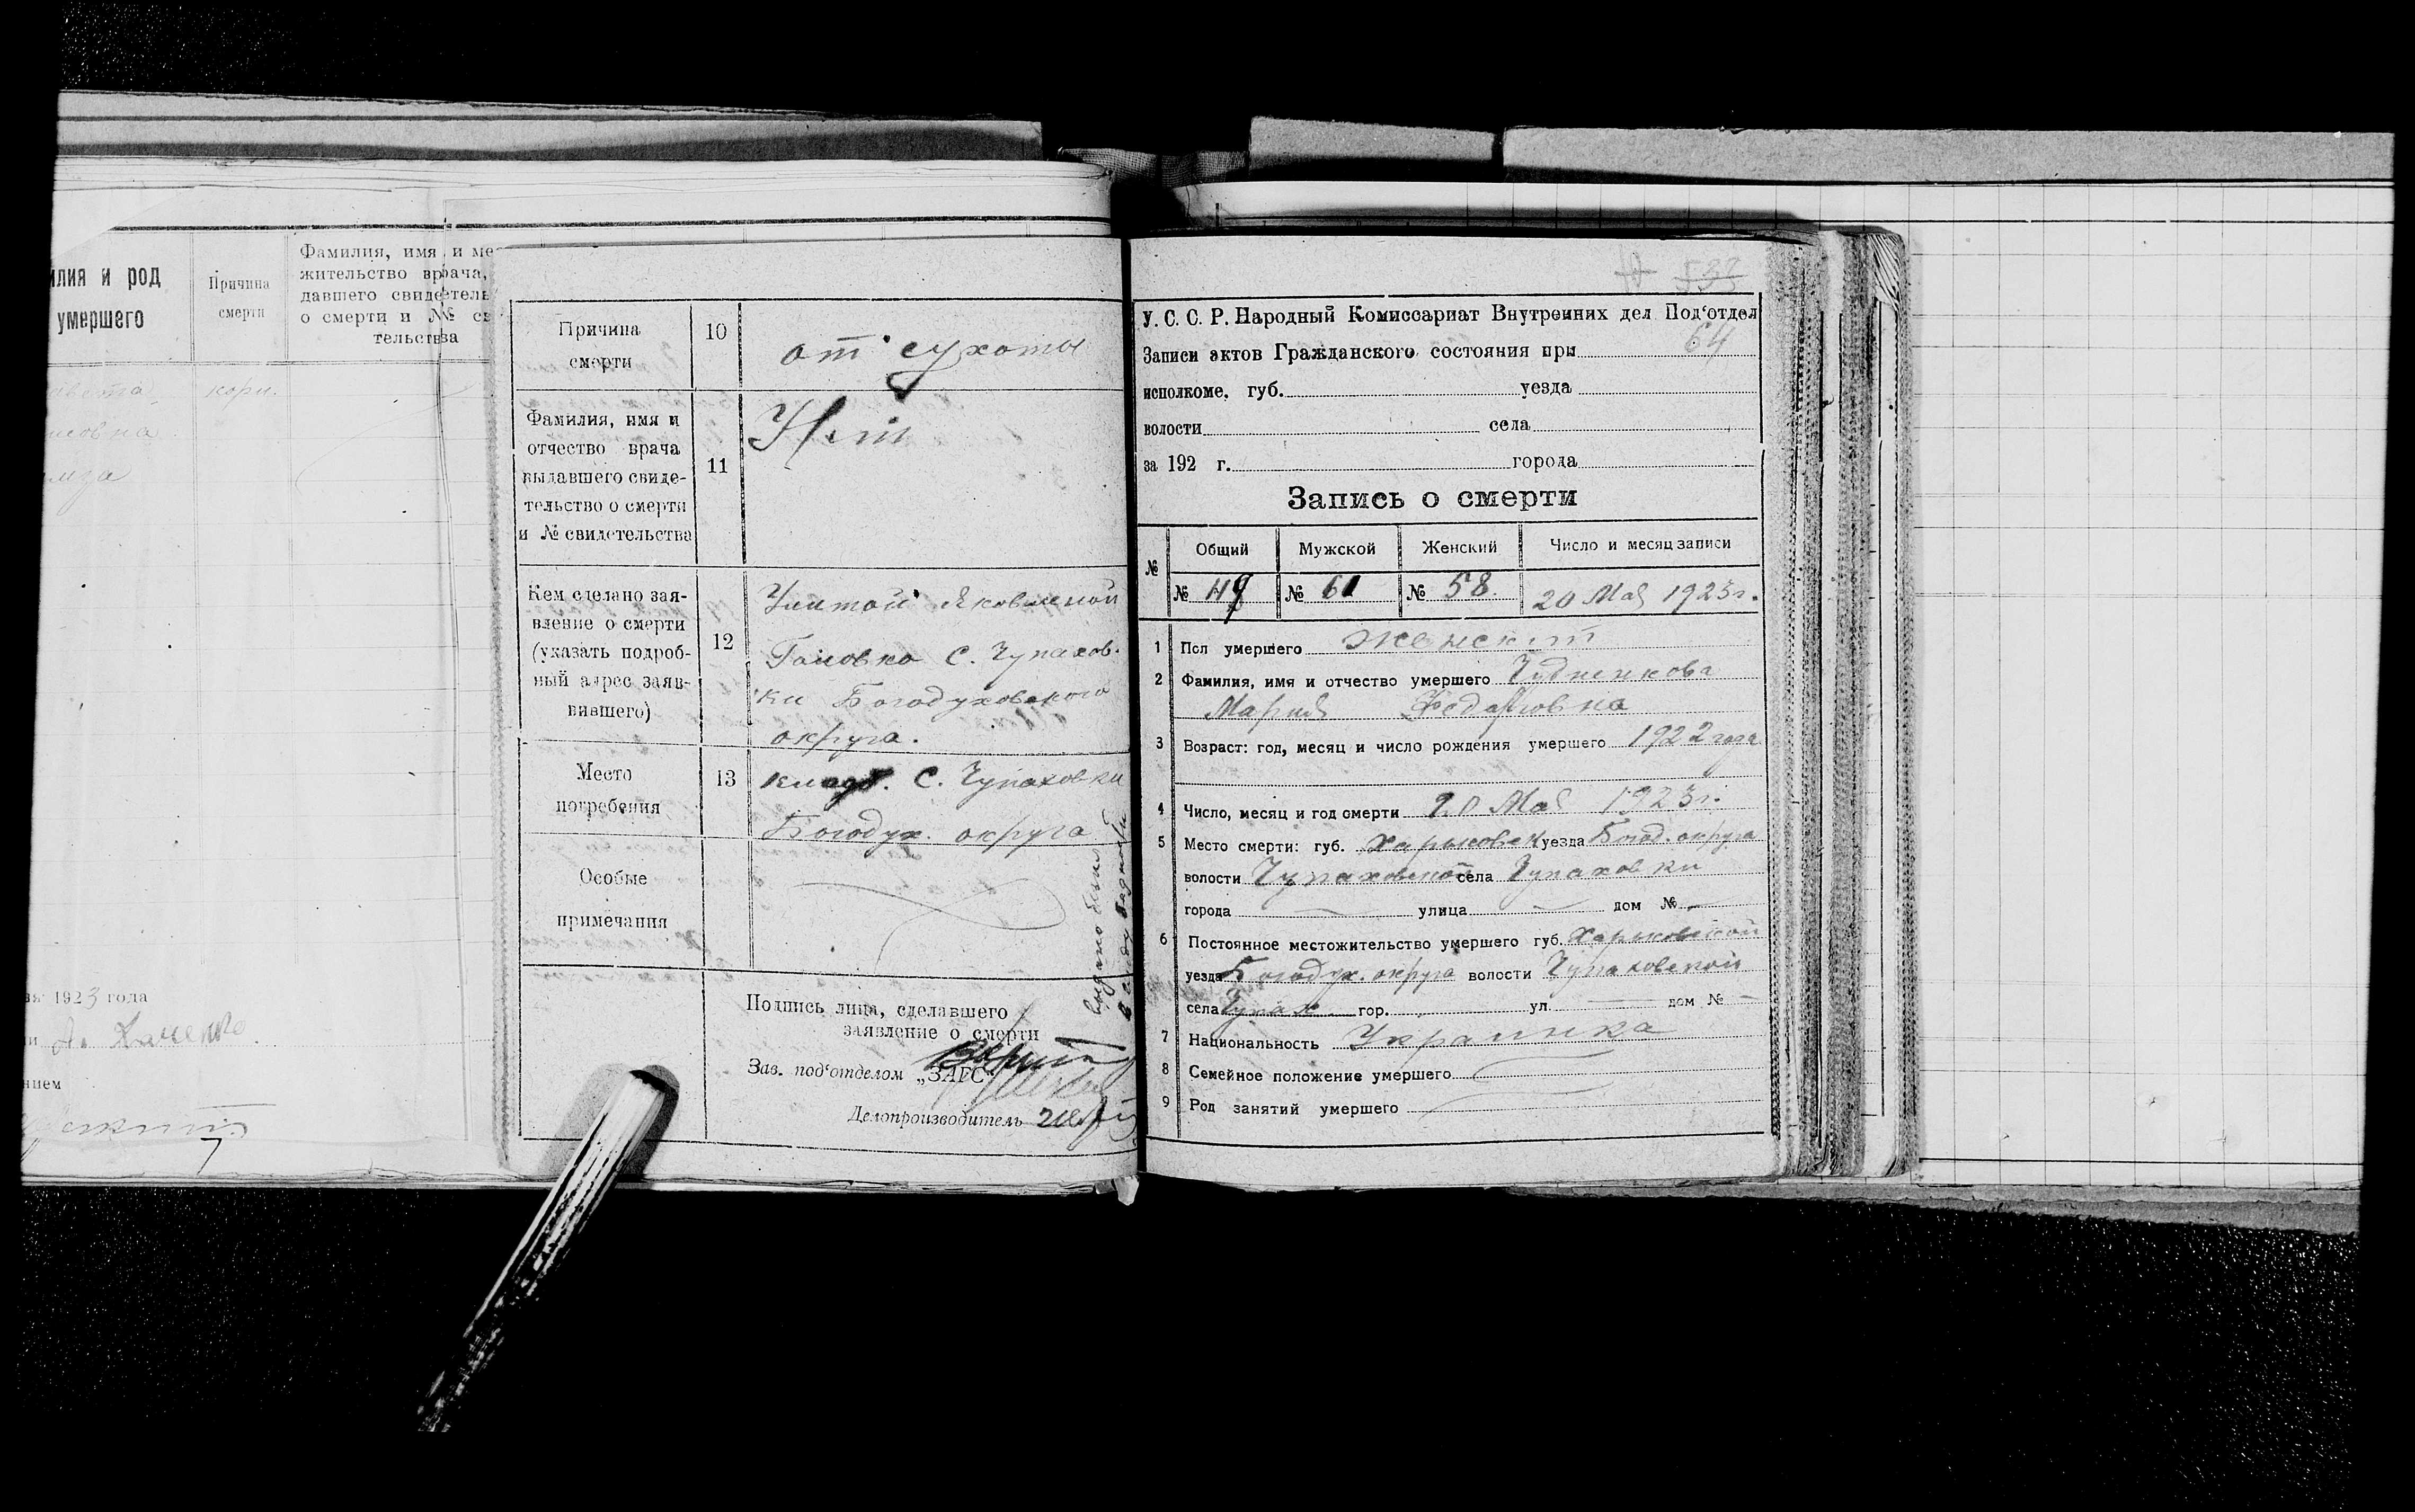 илия и род
умершего
Причина
смерти
Фамилия, имя и ме
жительство врача,
давшего свидетель
о смерти и № св
тельства
кори.
1923 года
нием
Причина
смерти
10
от сухоты
Фамилия, имя и
отчество врача
выдавшего свиде-
тельство о смерти
и № свидетельства
11
Нет
Кем сделано зая-
вление о смерти
(указать подроб-
ный адрес заяв-
вившего)
12
Улитой Яковлевной
Головко С. Чупахов-
ки Богодуховского
округа.
Место
погребения
13
кладб. С. Чупаховки
Богодух. округа
Особые
примечания
Подпись лица, сделавшего
заявление о смерти
Зав. под‘отделом „ЗАГС“
Делопроизводитель
532
У. С. С. Р. Народный Комиссариат Внутренних дел Под‘отдел
64
Записи актов Гражданского состояния при
исполкоме, губ. уезда
волости села
за 192 г. города
Запись о смерти
№ Общий Мужской Женский Число и месяц записи
№ № 61 № 58. 20 Мая 1923 г.
1 Пол умершего женский
2 Фамилия, имя и отчество умершего
Мария Федоровна
3 Возраст: год, месяц и число рождения умершего 1922 года
4 Число, месяц и год смерти 20 Мая 1923 г.
5 Место смерти: губ. Харьковск уезда Богод. округа
волости Чупаховской села Чупаховки
города улица дом №
6 Постоянное местожительство умершего губ. Харьковской
уезда Богодух. округа волости Чупаховской
села Чупах. гор. ул. дом №
7 Национальность Украинка
8 Семейное положение умершего
9 Род занятий умершего